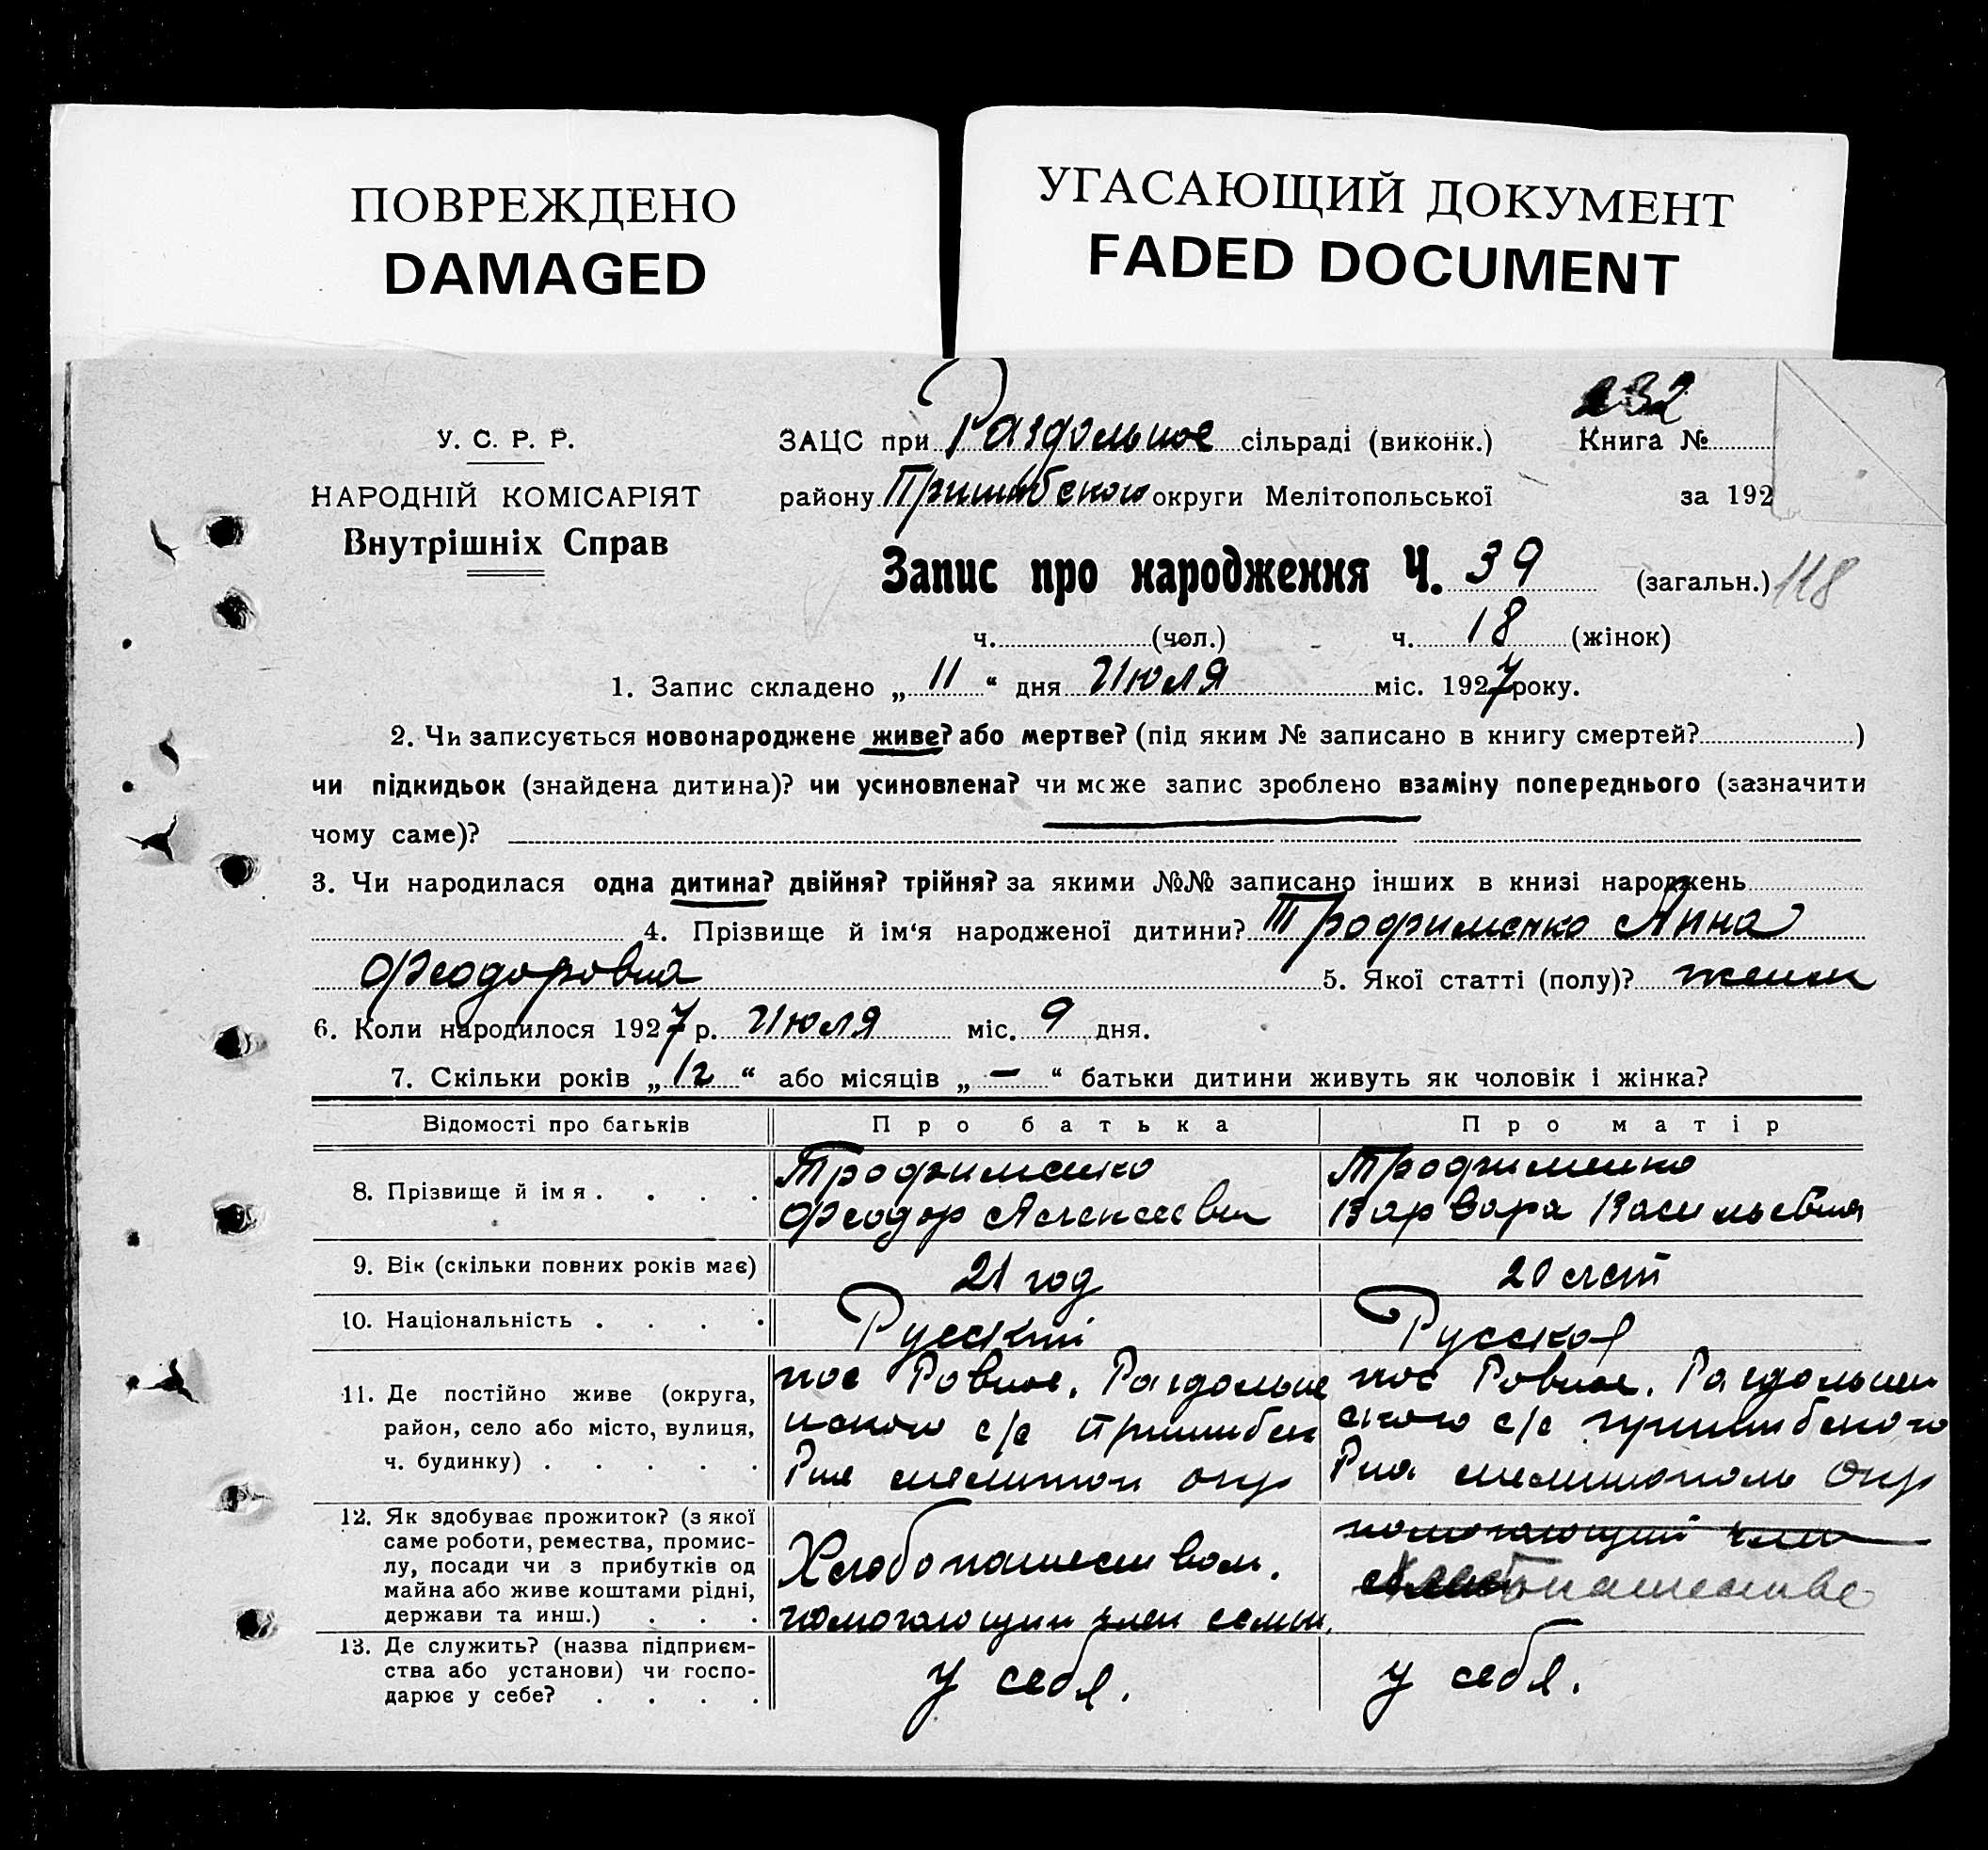 ПОВРЕЖДЕНО
DAMAGED
УГАСАЮЩИЙ ДОКУМЕНТ
FADED DOCUMENT
232
У. С. Р. Р.
ЗАЦС при Раздольное сільраді (виконк.) Книга №
НАРОДНІЙ КОМІСАРІЯТ
району Пришибского округи Мелітопольської за 192
Внутрішніх Справ
Запис про народження Ч. 39 (загальн.) 118
ч. (чол.) ч. 18 (жінок)
1. Запис складено „ 11 “ дня Июля міс. 1927 року.
2. Чи записується новонароджене живе? або мертве? (під яким № записано в книгу смертей? )
чи підкидьок (знайдена дитина)? чи усиновлена? чи може запис зроблено взаміну попереднього (зазначити
чому саме)?
3. Чи народилася одна дитина? двійня? трійня? за якими №№ записано інших в книзі народжень
4. Прізвище й ім‘я народженої дитини? Трофименко Анна
Феодоровна 5. Якої статті (полу)? женск
6. Коли народилося 1927 р. Июля міс. 9 дня.
7. Скільки років „ 1г “ або місяців „ — “ батьки дитини живуть як чоловік і жінка?
Відомості про батьків
Про батька
Про матір
8. Прізвище й імя . . . .
Трофименко
Феодор Алексеевич
Трофименко
Варвара Васильевна
9. Вік (скільки повних років має)
21 год
20 лет
10. Національність . . . .
Русский
Русская
11. Де постійно живе (округа,
район, село або місто, вулиця,
ч. будинку) . . . . .
пос Ровное. Раздольне
нского с/с Пришибск
Рна мелитоп окр
пос Ровное. Раздольнен
ского с/с пришибского
Рна мелитополь окр
12. Як здобуває прожиток? (з якої
саме роботи, ремества, промис-
лу, посади чи з прибутків од
майна або живе коштами рідні,
держави та инш.) . . .
Хлебопашеством.
помогающий член семьи.
помогающий член
хлебопашество
13. Де служить? (назва підприєм-
ства або установи) чи госпо-
дарює у себе? . . . .
у себя.
у себя.